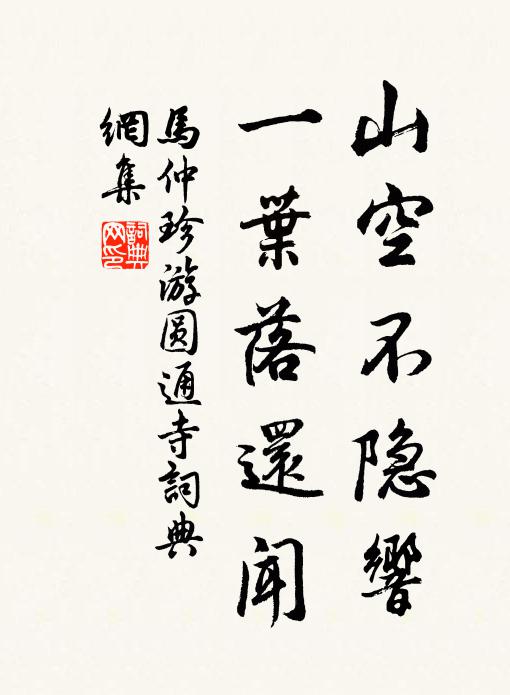 山空不隐響
一葉落還闻
馬仲珍游圆通寺詞典
網集
詞典
网印